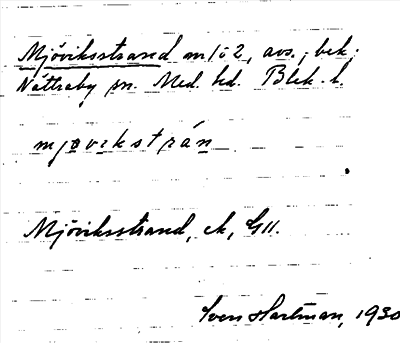 Mjöviksstrand m/ö 2, avs., bek.
Nättraby sn. Med. hd. Blek. l.
mjøvikstrán
Mjöviksstrand, ek, G11.
Sven Hartman, 1930